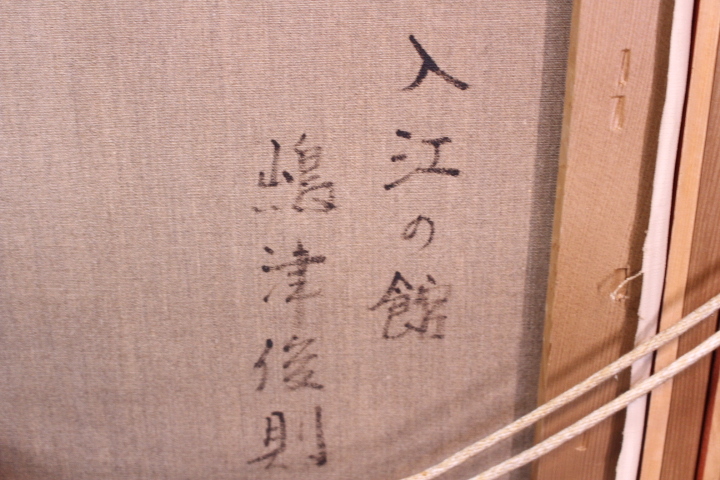 入江の館
嶋津俊則